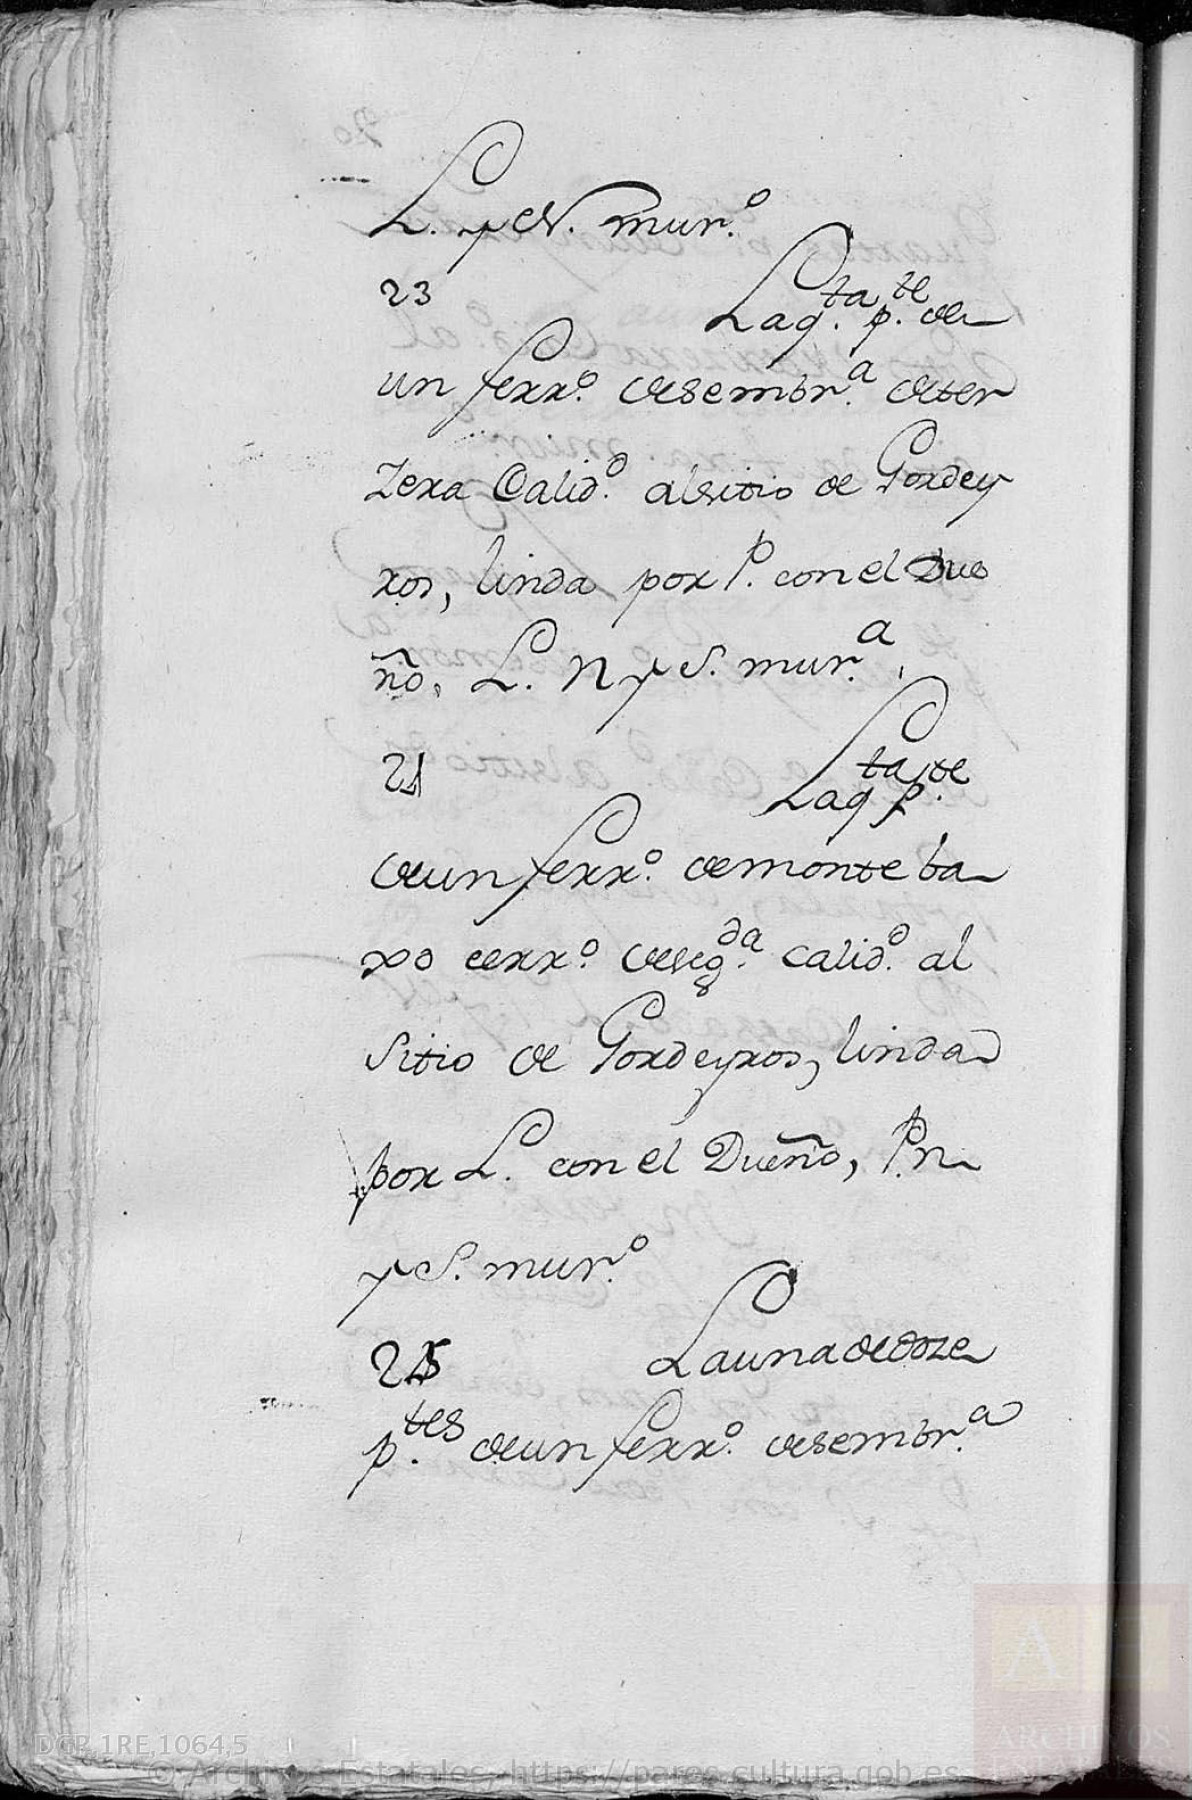 L. y N. mur.º
23
La q.ta p.te de
un ferr.º de sembr.a de ter
zera Calid.d al sitio de Gordey
ros, linda por P. con el Due
ño, L. N y S. mur.a
24
La q.ta p.te
de un ferr.º de monte ba
xo cerr.º de seg.da calid.d al
sitio de Gordeyros, linda
por L. con el Dueño, P. n
y S. mur.º
25
La una de doze
p.tes de un ferr.º de sembr.a
DGP 1RE,1064,5
© Archivos Estatales, https://pares.cultura.gob.es
AE
ARCHIVOS
ESTATALES